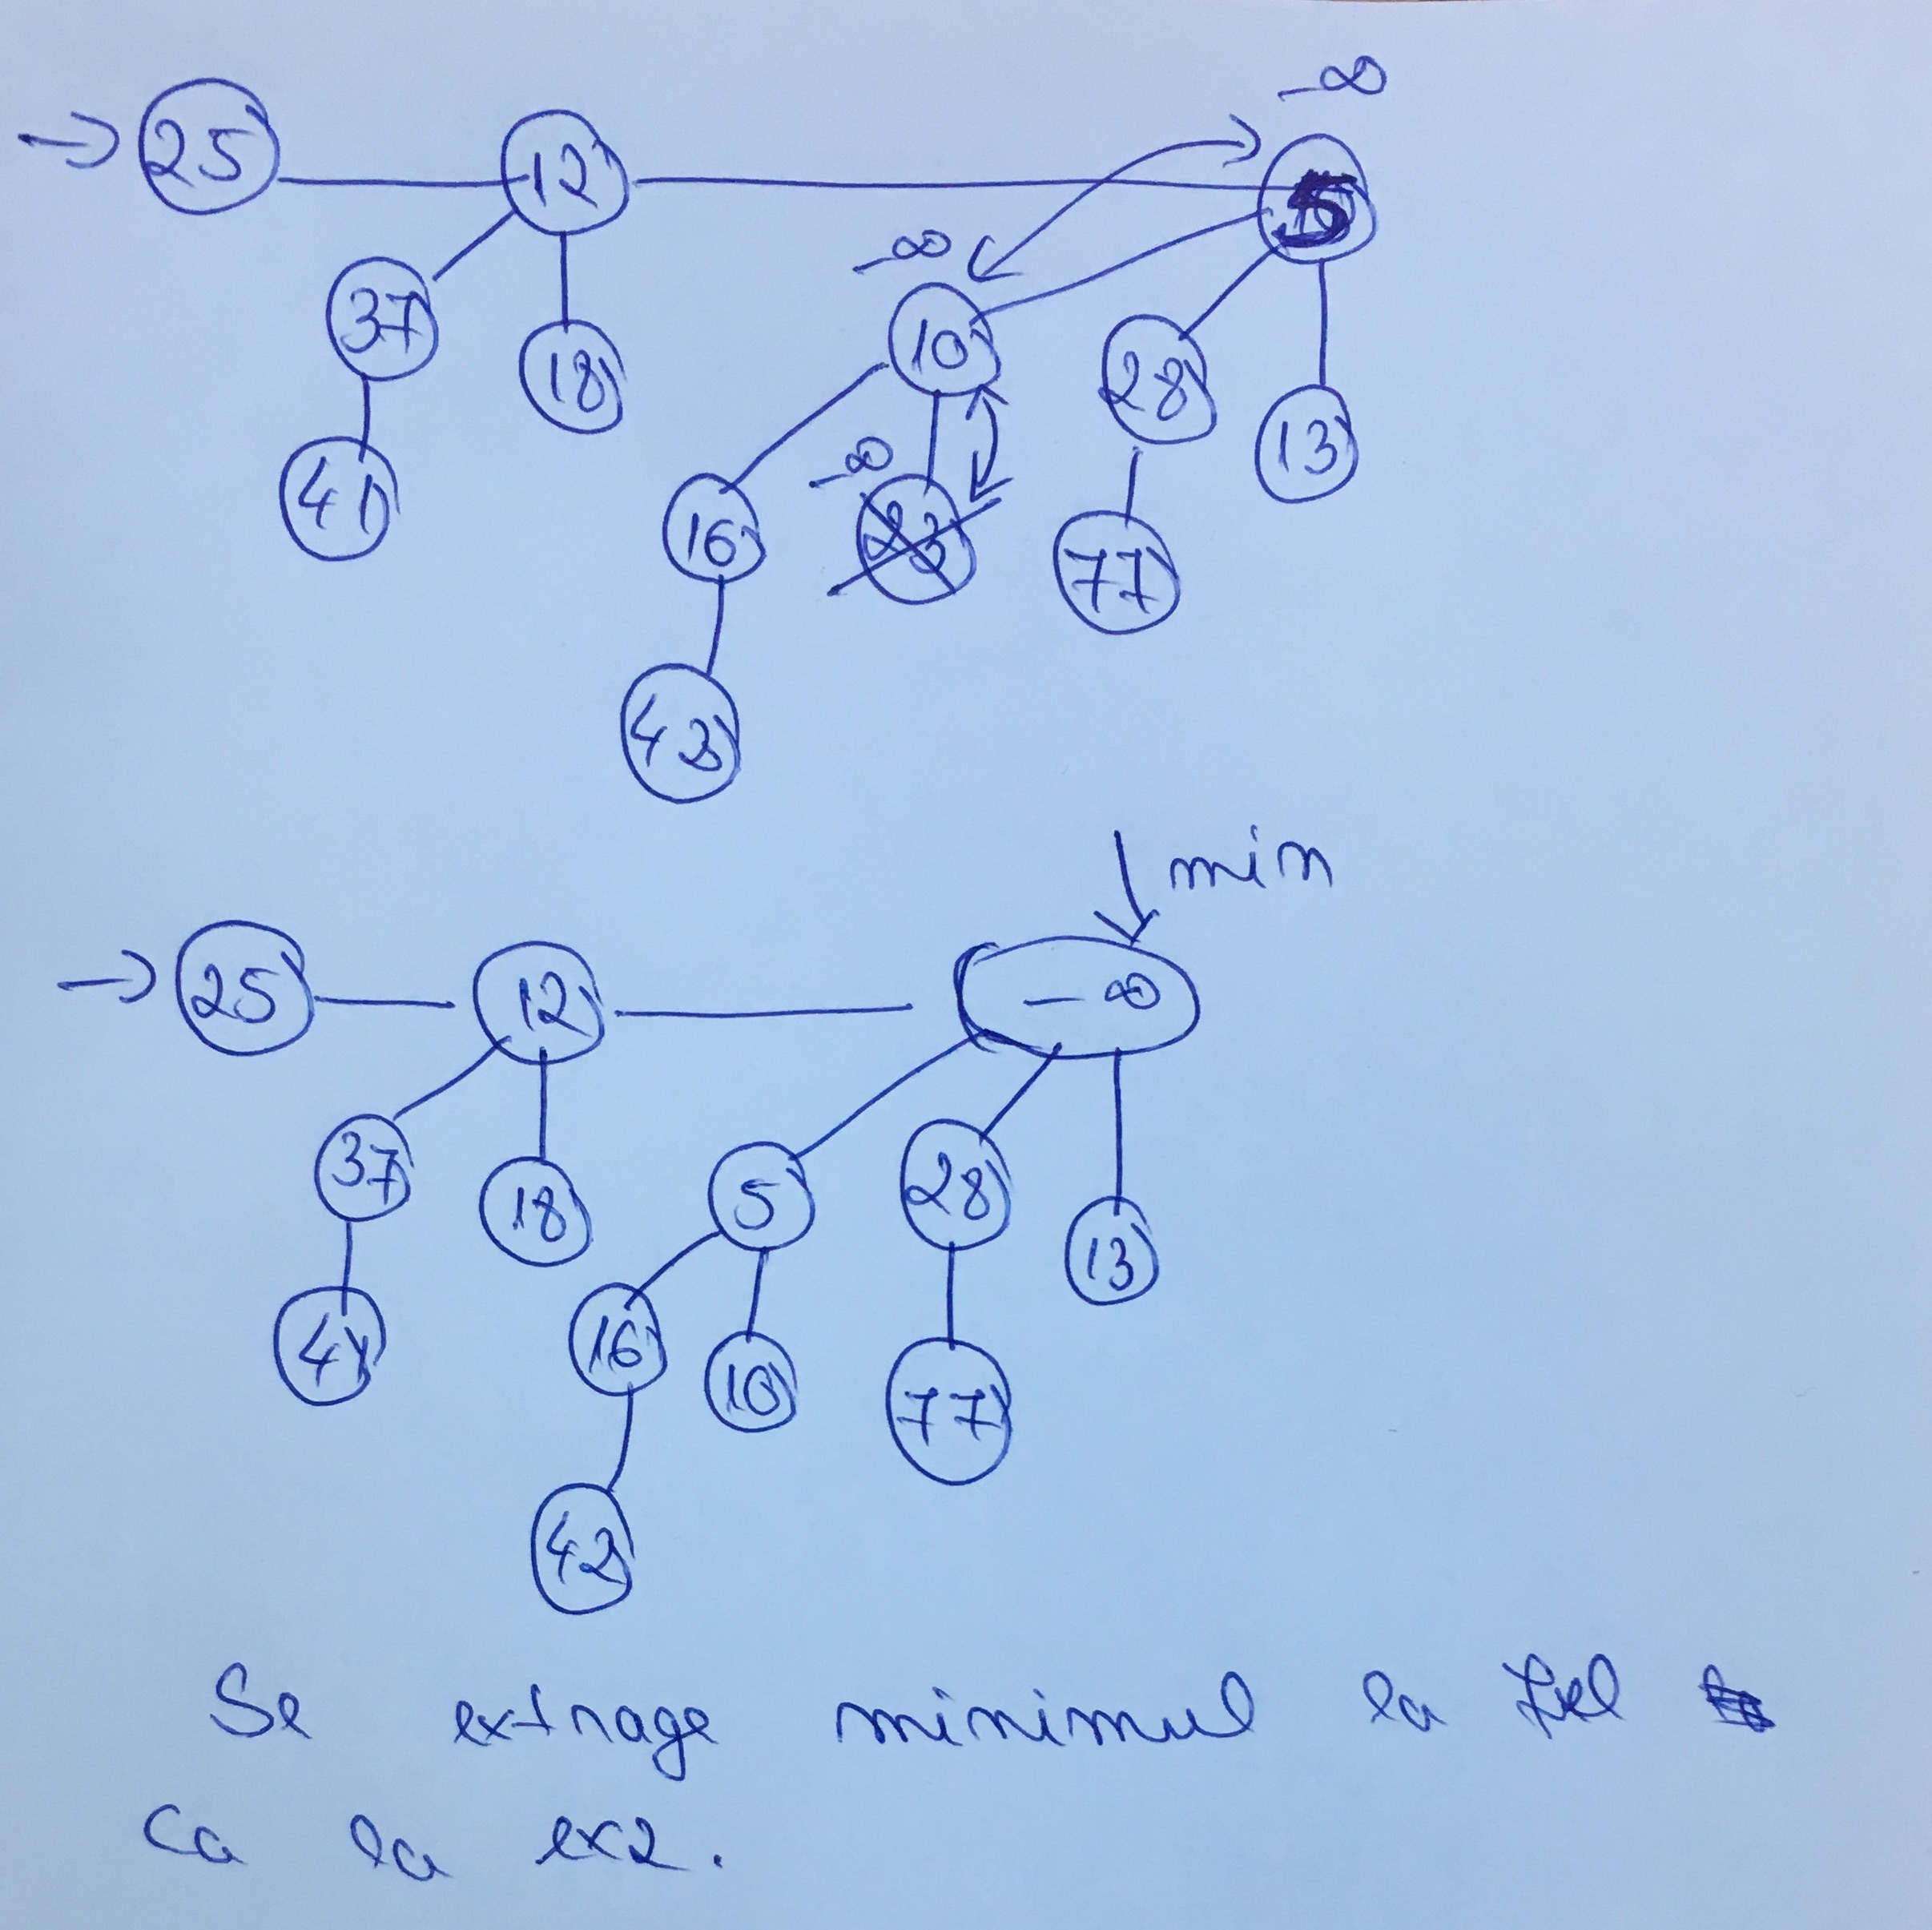 -∞
→ 25 12 5
-∞
37 10
18 28
41 -∞ 13
16 23
77
43
↓ min
→ 25 12 -∞
37 18 5 28 13
41 16 10 77
42
Se extrage minimul la fel
ca la ex2.